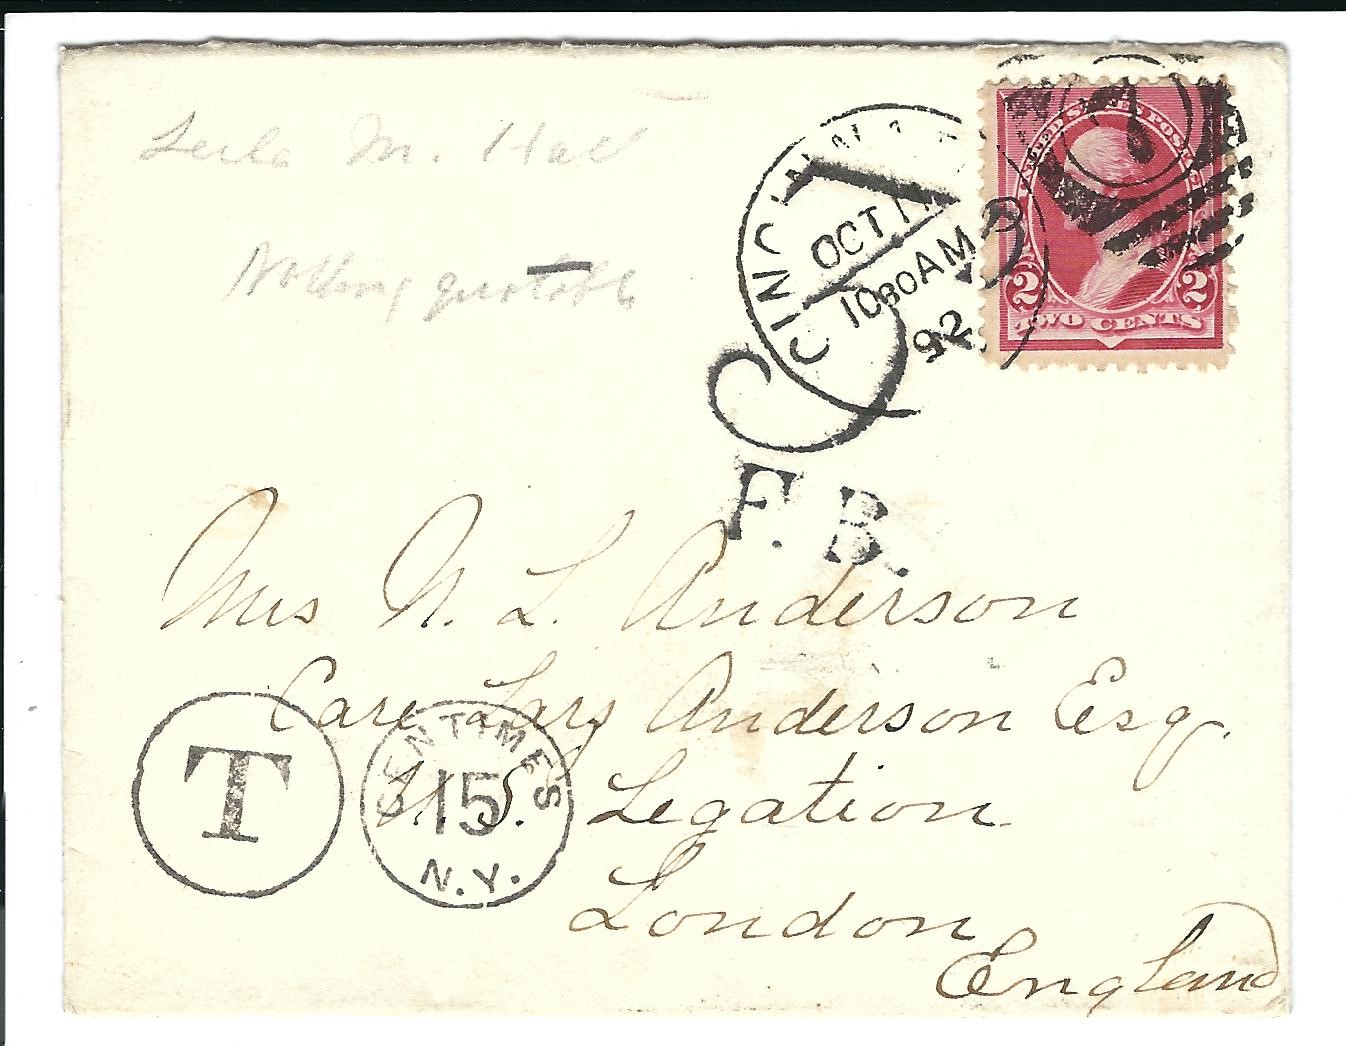 Leila M. Hall
Nothing quotable
CINCINNATI
OCT 11
10 30 AM
92
UNITED STATES POSTAGE
2 2
TWO CENTS
3
F. B.
Mrs N. L. Anderson
Care Larz Anderson Esq.
U. S. Legation
London
England
T
CENTIMES
15
N.Y.